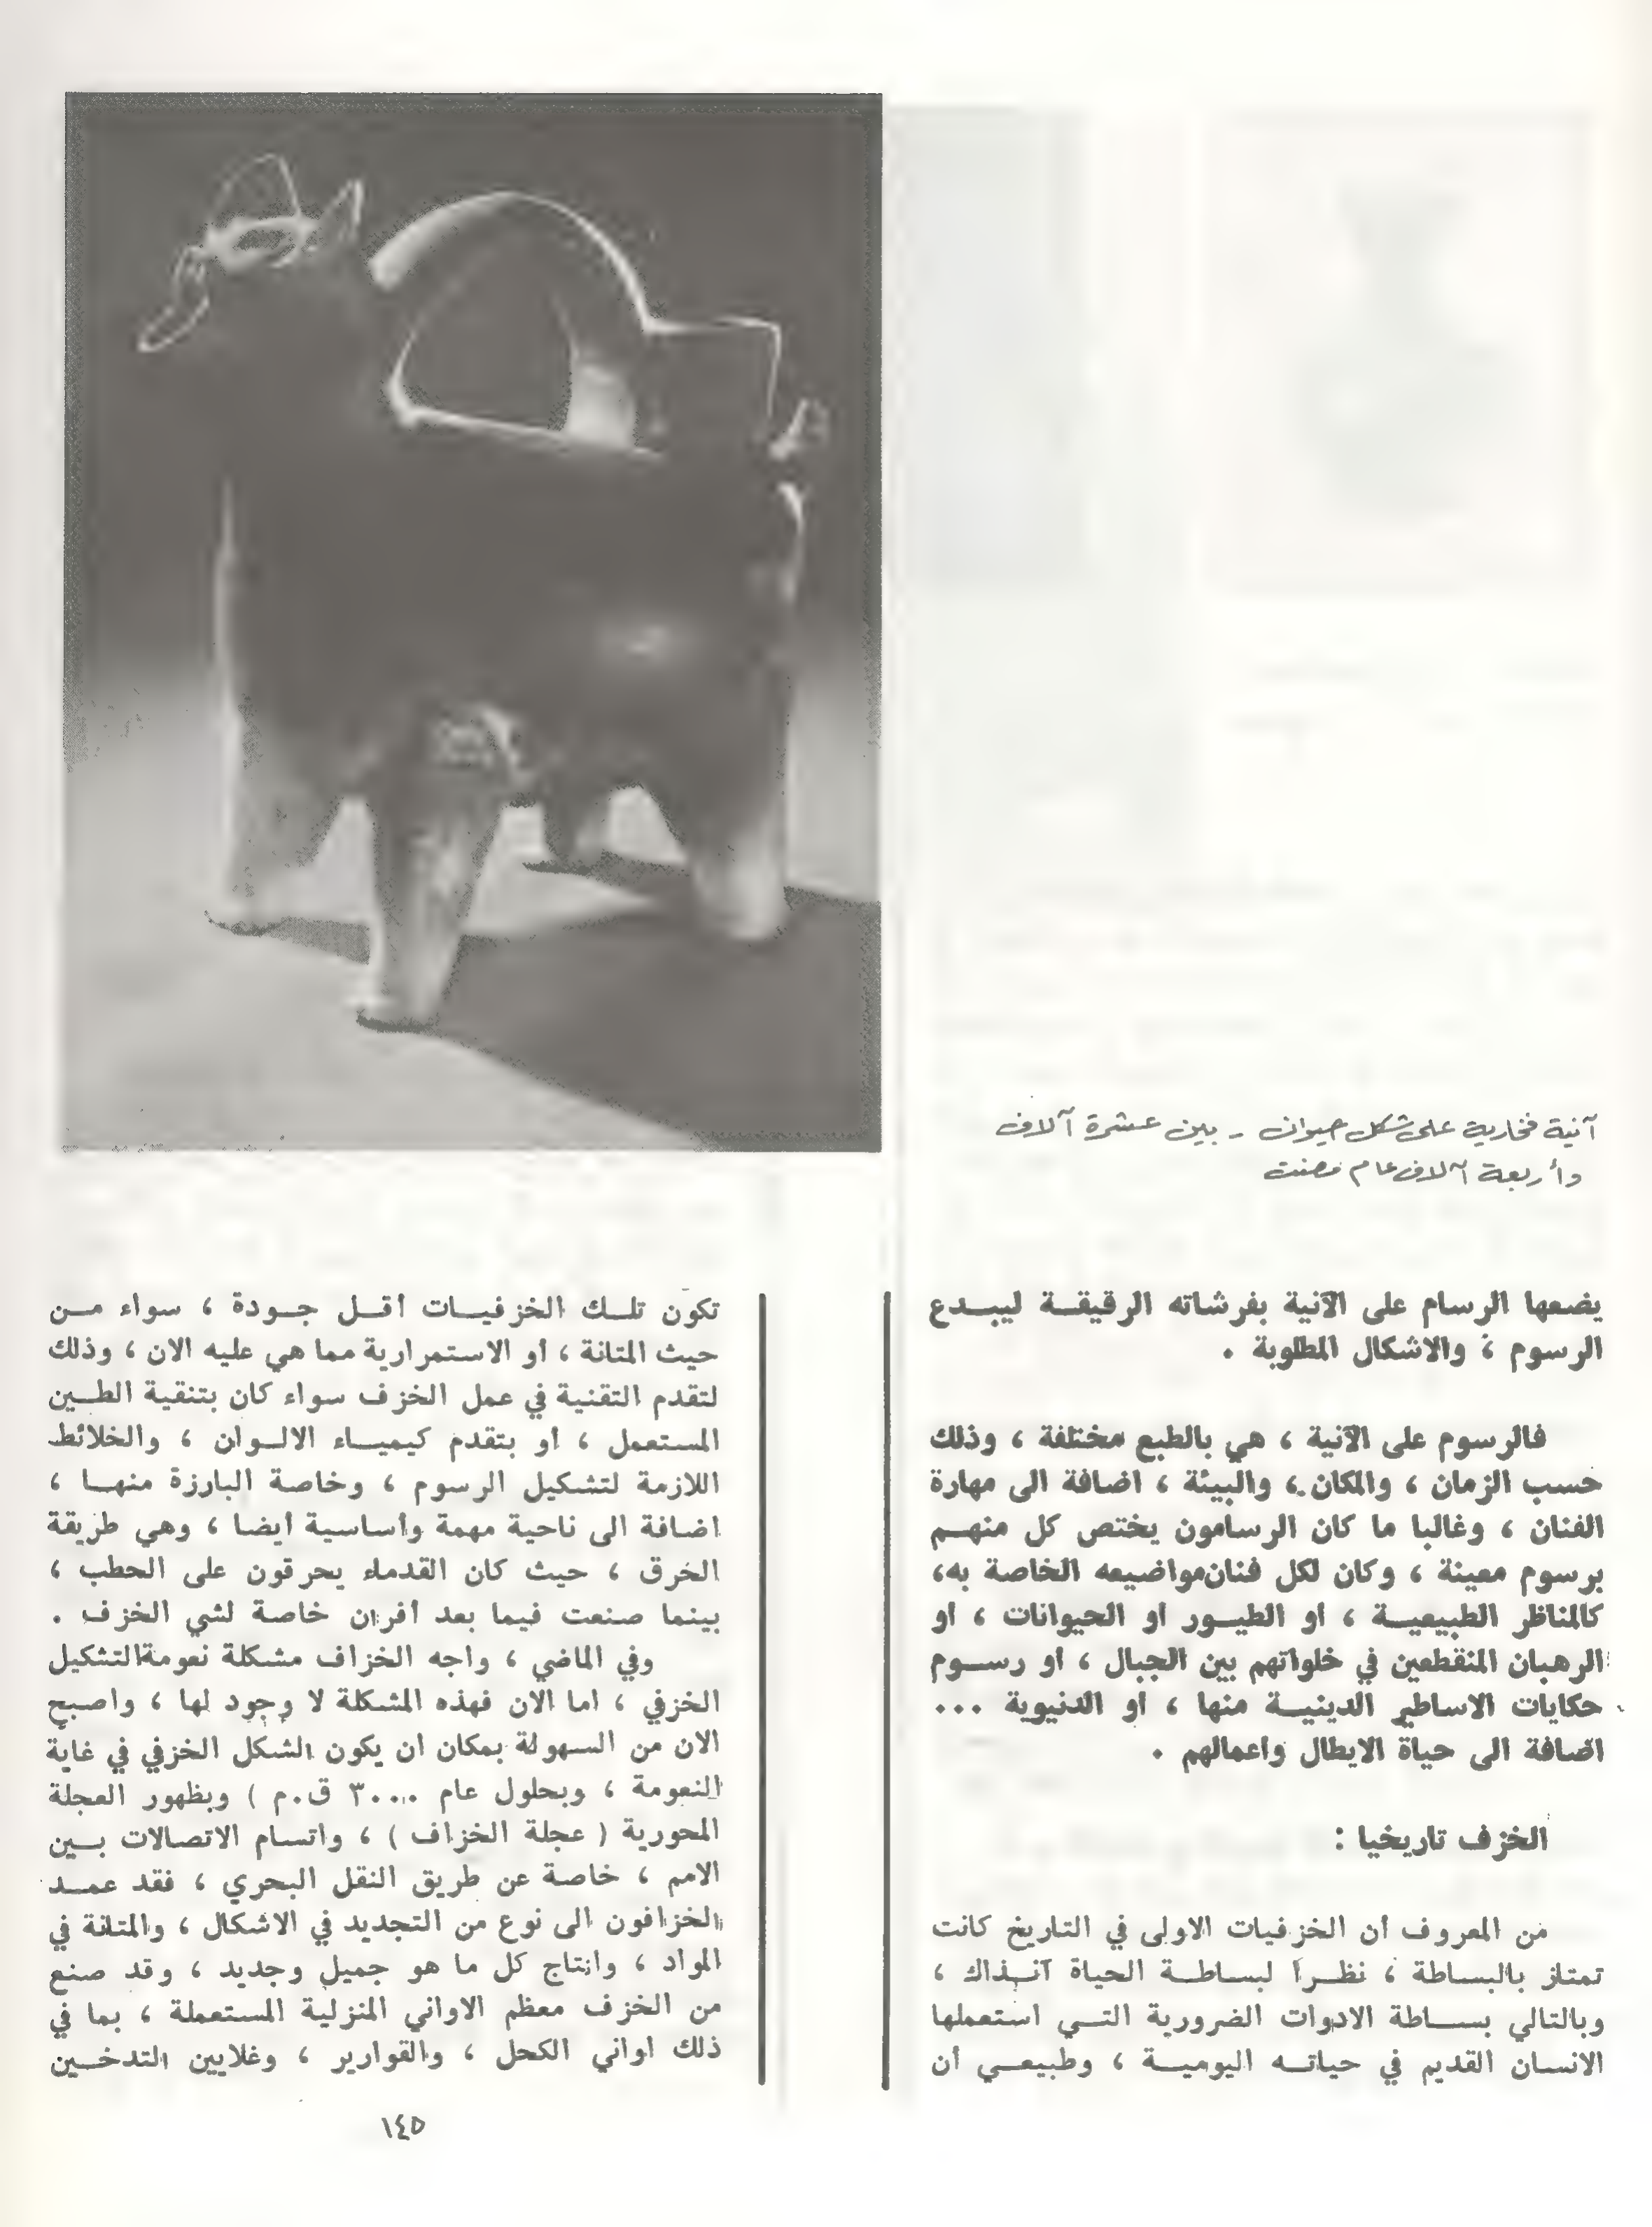 آنية فخارية على شكل حيوان - بين عشرة آلاف
وأربعة آلاف عام مضت
يضعها الرسام على الآنية بفرشاته الرقيقة ليبدع
الرسوم ، والاشكال المطلوبة .
فالرسوم على الآنية ، هي بالطبع مختلفة ، وذلك
حسب الزمان ، والمكان ، والبيئة ، اضافة الى مهارة
الفنان ، وغالبا ما كان الرسامون يختص كل منهم
برسوم معينة ، وكان لكل فنان مواضيعه الخاصة به،
كالمناظر الطبيعية ، او الطيور او الحيوانات ، او
الرهبان المنقطعين في خلواتهم بين الجبال ، او رسوم
حكايات الاساطير الدينية منها ، او الدنيوية ...
اضافة الى حياة الابطال واعمالهم .
الخزف تاريخيا :
من المعروف أن الخزفيات الاولى في التاريخ كانت
تمتاز بالبساطة ، نظراً لبساطة الحياة آنذاك ،
وبالتالي بساطة الادوات الضرورية التي استعملها
الانسان القديم في حياته اليومية ، وطبيعي أن
تكون تلك الخزفيات أقل جودة ، سواء من
حيث المتانة ، أو الاستمرارية مما هي عليه الان ، وذلك
لتقدم التقنية في عمل الخزف سواء كان بتنقية الطين
المستعمل ، او بتقدم كيمياء الالوان ، والخلائط
اللازمة لتشكيل الرسوم ، وخاصة البارزة منها ،
اضافة الى ناحية مهمة وأساسية أيضا ، وهي طريقة
الخرق ، حيث كان القدماء يحرقون على الحطب ،
بينما صنعت فيما بعد أفران خاصة لشي الخزف .
وفي الماضي ، واجه الخزاف مشكلة نعومة التشكيل
الخزفي ، اما الآن فهذه المشكلة لا وجود لها ، واصبح
الان من السهولة بمكان ان يكون الشكل الخزفي في غاية
النعومة ، وبحلول عام ٣٠٠٠ ق.م ) وبظهور العجلة
المحورية ( عجلة الخزاف ) ، واتسام الاتصالات بين
الامم ، خاصة عن طريق النقل البحري ، فقد عمد
الخزافون الى نوع من التجديد في الاشكال ، والمتانة في
المواد ، وانتاج كل ما هو جميل وجديد ، وقد صنع
من الخزف معظم الاواني المنزلية المستعملة ، بما في
ذلك اواني الكحل ، والقوارير ، وغلايين التدخين
١٤٥